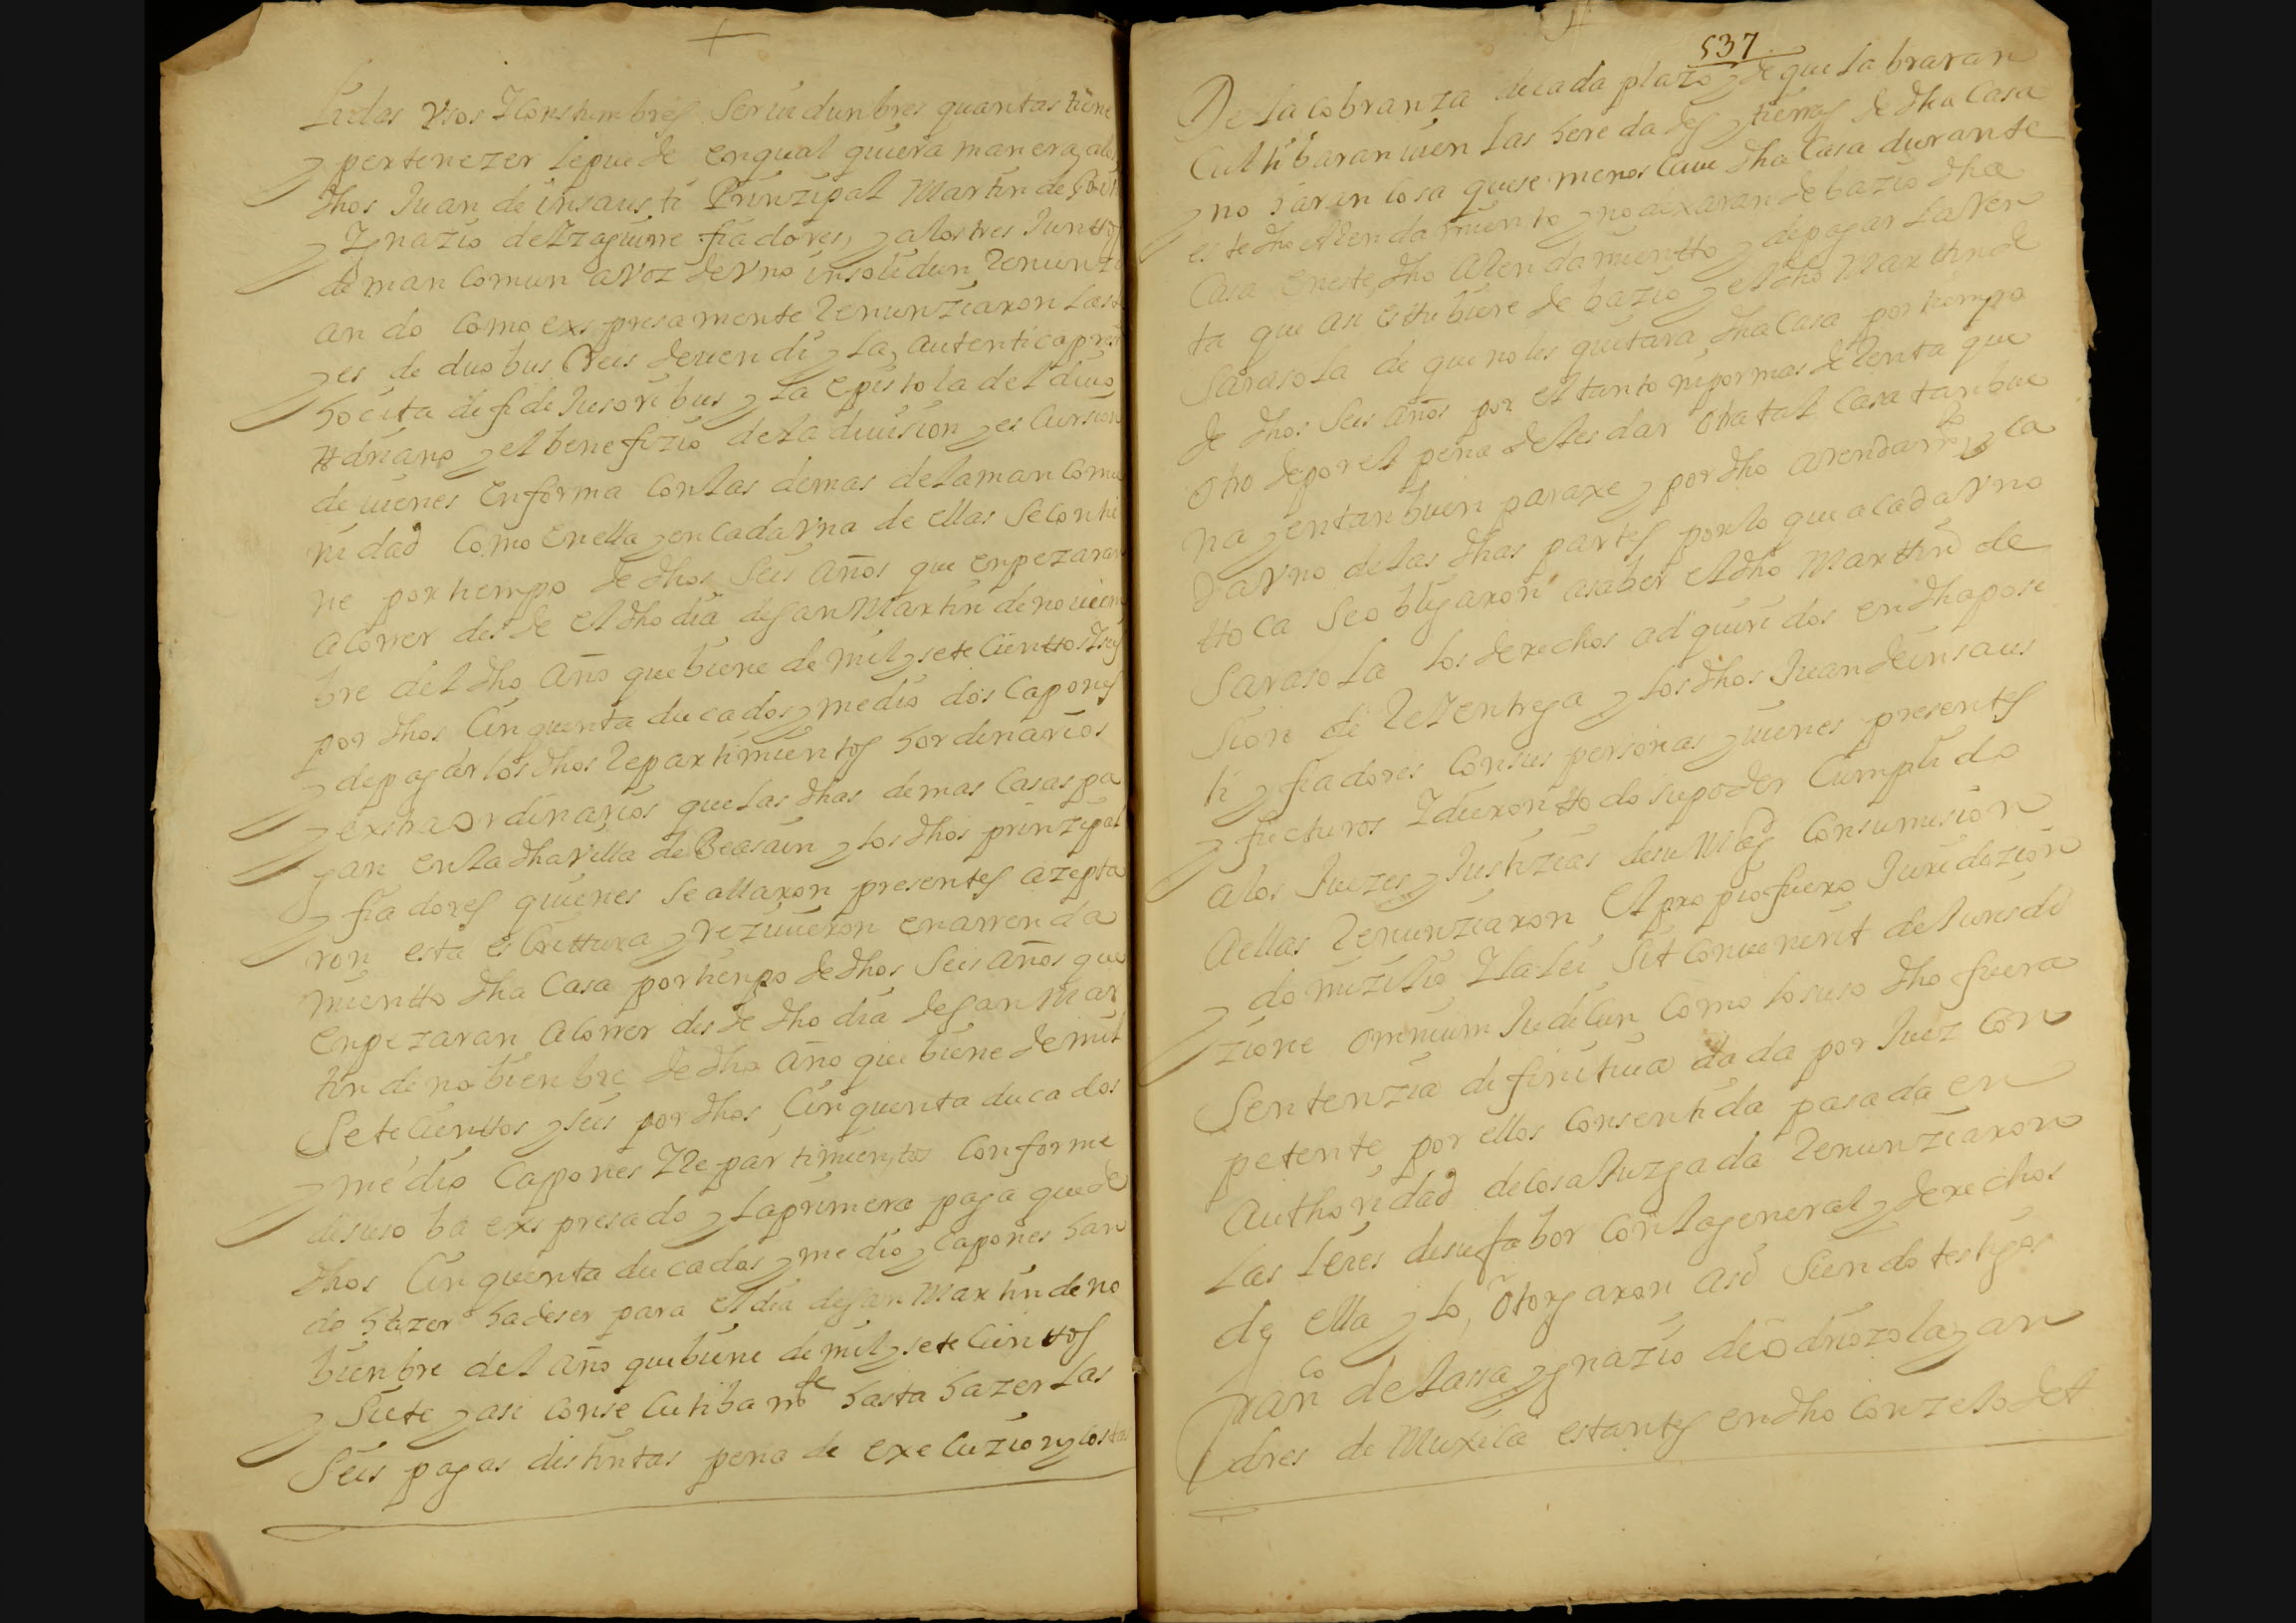 tudas Vsos Y Constumbres Seruidunbres quantas tiene
y pertenezer lepuede enqual quiera manera, alos
dhos Juan de insausti Prinzipal Martin de
y Ygnazio de Yzaguirre fiadores, y alos tres Junttos
de man comun avoz deVno insolidun Renunzi
ando como exspresamente Renunziaron las le
yes de duobus Reis deuendi y la autentica pres
hocita de fide Jusoribus y la Epistola del diuo
Adriano y el benefizio dela diuision y es Cursion
de uienes Enforma Conlas demas delaman comu
nidad Como Enella y en CadaVna de ellas Seconti
ne portiempo de dhos Seis años que enpezaran
aCorrer desde el dho dia desan Martin de nouiem
bre del dho Año que biene de mil y sete Cienttos y seis
por dhos Cinquenta ducados y medio dos Capones
y depagar los dhos Repartimientos hordinarios
y exstraordinarios que las dhas demas Casas pa
gan en la dha Villa de Beasain y los dhos prinzipal
y fiadores quienes se allaron presentes azepta
ron esta escrittura y rezivieron enarrenda
mientto dha Casa portienpo de dhos Seis años que
Enpezaran aCorrer desde dho dia de San Mar
tin de nobienbre de dho año que biene de mil
Setecienttos y seis por dhos Cinquenta ducados
y medio Capones Y Repartimientos Conforme
desuso ba exspresado y la primera paga que de
dhos Cinquenta ducados y medio y Capones han
de hazer ha de ser para el dia de San Martin de no
bienbre del año que biene de mil y sete Cienttos
y Siete y asi conse Cutibamte hasta hazer las
Seis pagas distintas pena de exeCuzion y costas
537
De la cobranza decada plazo y de que labraran
Cultibaran uien las heredades y tierras de dha Casa
y no haran cosa que se menos caue dha Casa durante
este dho aRendamiento y no dexaran de bazio dha
Casa eneste dho aRendamientto y depagar laRen
ta que asi esttubiere de bazio y el dho Marttin de
Sarasola de que no les quitara dha Casa por tiempo
de dhos Seis años por el tanto ni por mas deRenta que
otro depor el pena de les dar otra tal Casa tan bue
na y en tan buen paraxe y por dho arendamto y ca
daVno delas dhas partes por lo que a CadaVno
ttoca Seobligaron asaber el dho Marttin de
Sarasola los derechos adquiridos en dha pose
sion de Rettentrega y los dhos Juan de insaus
ti y fiadores Consus personas y uienes presentes
y fucturos Y dieron ttodo su poder Cumplido
alos Juezes y Justizias desu Magd Consumision
Aellas Renunziaron El propio fuero Juridizion
y domizilio Y la lei Sit Convenerit de Jurisdi
zione omnium Judicun Como lo suso dho fuera
Sentenzia difinitiua dada por Juez Con
petente por ellos Consentida pasada en
Authoridad de Cosa Juzgada Renunziaron
las leies desufabor Con la general y derechos
de ella y lo otorgaron asi Siendo testigos
Franco de lasa Ygnazio de odriozola y an
dres de Muxica estantes en dho Conzejo del